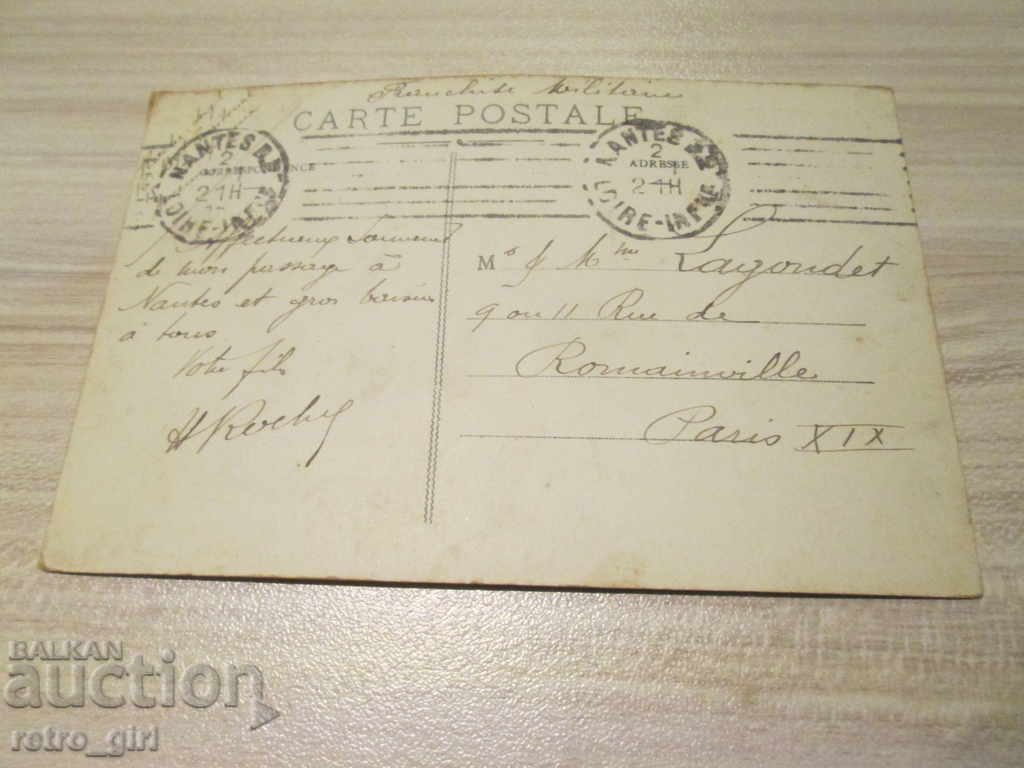 Franchise Militaire
CARTE POSTALE
NANTES
2
21H
LOIRE-INFRE
NANTES
2
ADRESSE
21H
LOIRE-INFRE
Affectueux Souvenir
de mon passage à
Nantes et gros baisers
à tous
Votre fils
Mr & Mme Lagoudet
9 ou 11 Rue de
Romainville
Paris XIX
BALKAN
auction
retro_girl